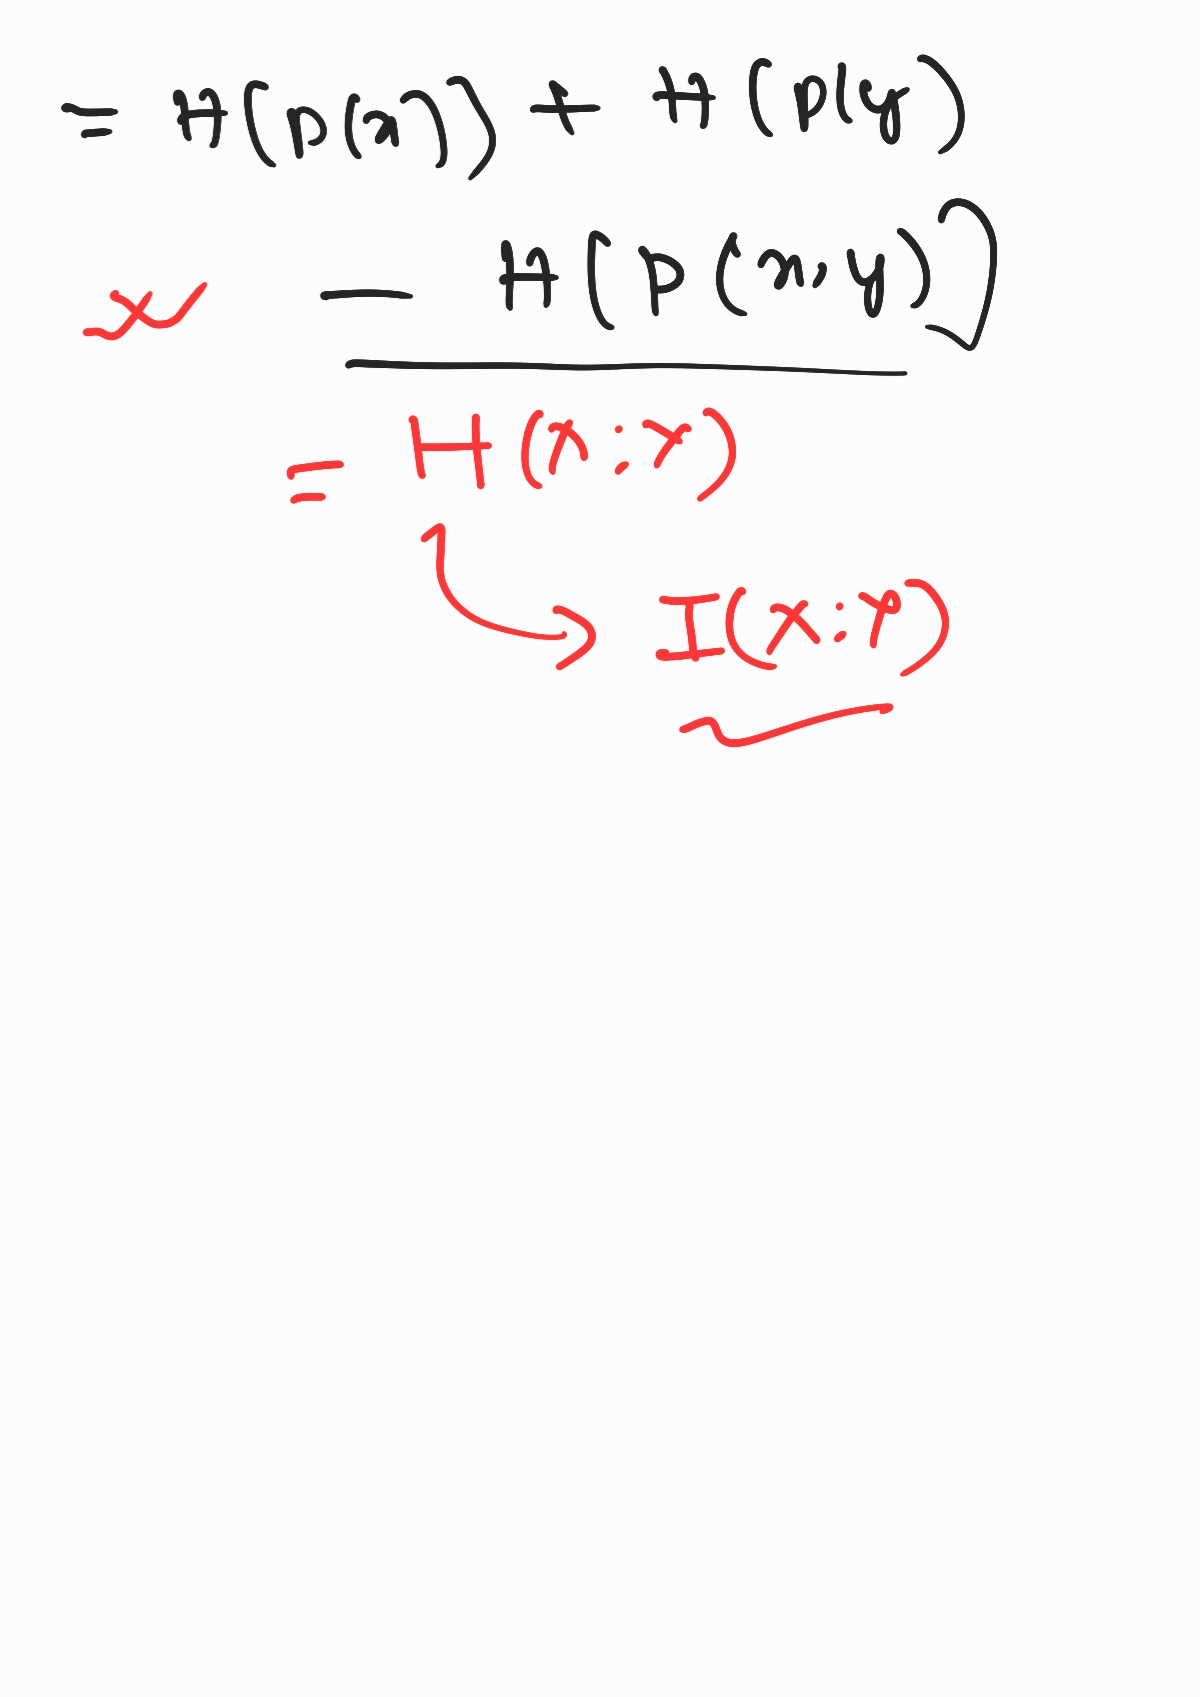 = H(p(x)) + H(p(y)
x − H(p(x,y))
= H(X:Y)
I(X:Y)